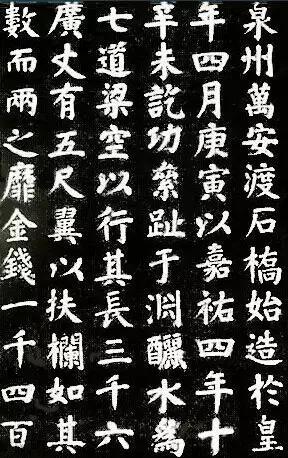 泉州萬安渡石橋始造於皇
年四月庚寅以嘉祐四年十
辛未訖功絫趾于淵釃水爲
七道梁空以行其長三千六
廣丈有五尺翼以扶欄如其
數而兩之靡金錢一千四百